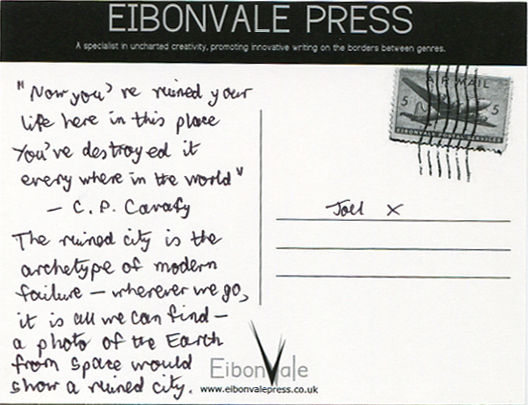 EIBONVALE PRESS
A specialist in uncharted creativity, promoting innovative writing on the borders between genres.
"Now you've ruined your
life here in this place
You've destroyed it
every where in the world"
— C. P. Cavafy
The ruined city is the
archetype of modern
failure — wherever we go,
it is all we can find —
a photo of the Earth
from space would
show a ruined city.
AIR MAIL
5 5
Joel X
EibonVale
www.eibonvalepress.co.uk